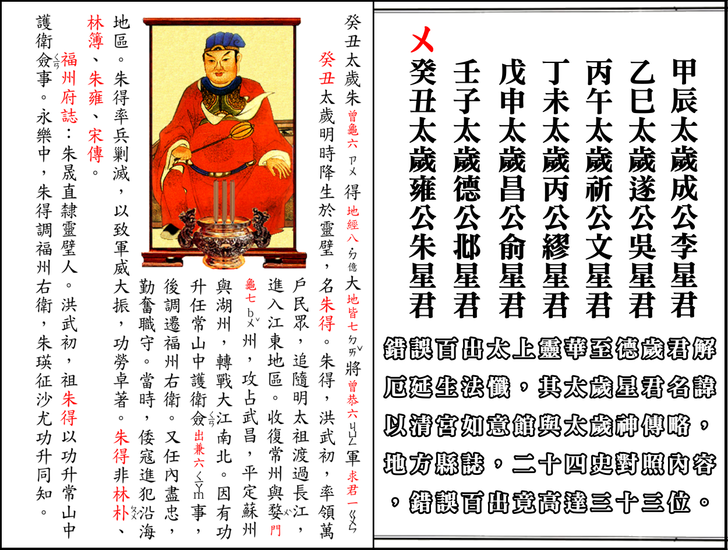 甲辰太歲成公李星君
乙巳太歲遂公吳星君
丙午太歲祈公文星君
丁未太歲丙公繆星君
戊申太歲昌公俞星君
壬子太歲德公邶星君
癸丑太歲雍公朱星君
錯誤百出太上靈華至德歲君解
厄延生法懺，其太歲星君名諱
以清宮如意館與太歲神傳略，
地方縣誌，二十四史對照內容
，錯誤百出竟高達三十三位。
癸丑太歲朱曾龜六得地經八大地皆七將曾恭六軍求君一
癸丑太歲明時降生於靈璧，名朱得。朱得，洪武初，率領萬
戶民眾，追隨明太祖渡過長江，
進入江東地區。收復常州與婺門
龜七州，攻占武昌，平定蘇州
與湖州，轉戰大江南北。因有功
升任常山中護衛僉出兼六事，
後調遷福州右衛。又任內盡忠，
勤奮職守。當時，倭寇進犯沿海
地區。朱得率兵剿滅，以致軍威大振，功勞卓著。朱得非林朴、
林簿、朱雍、宋傳。
福州府誌：朱晸直隸靈璧人。洪武初，祖朱得以功升常山中
護衛僉事。永樂中，朱得調福州右衛，朱瑛征沙尤功升同知。